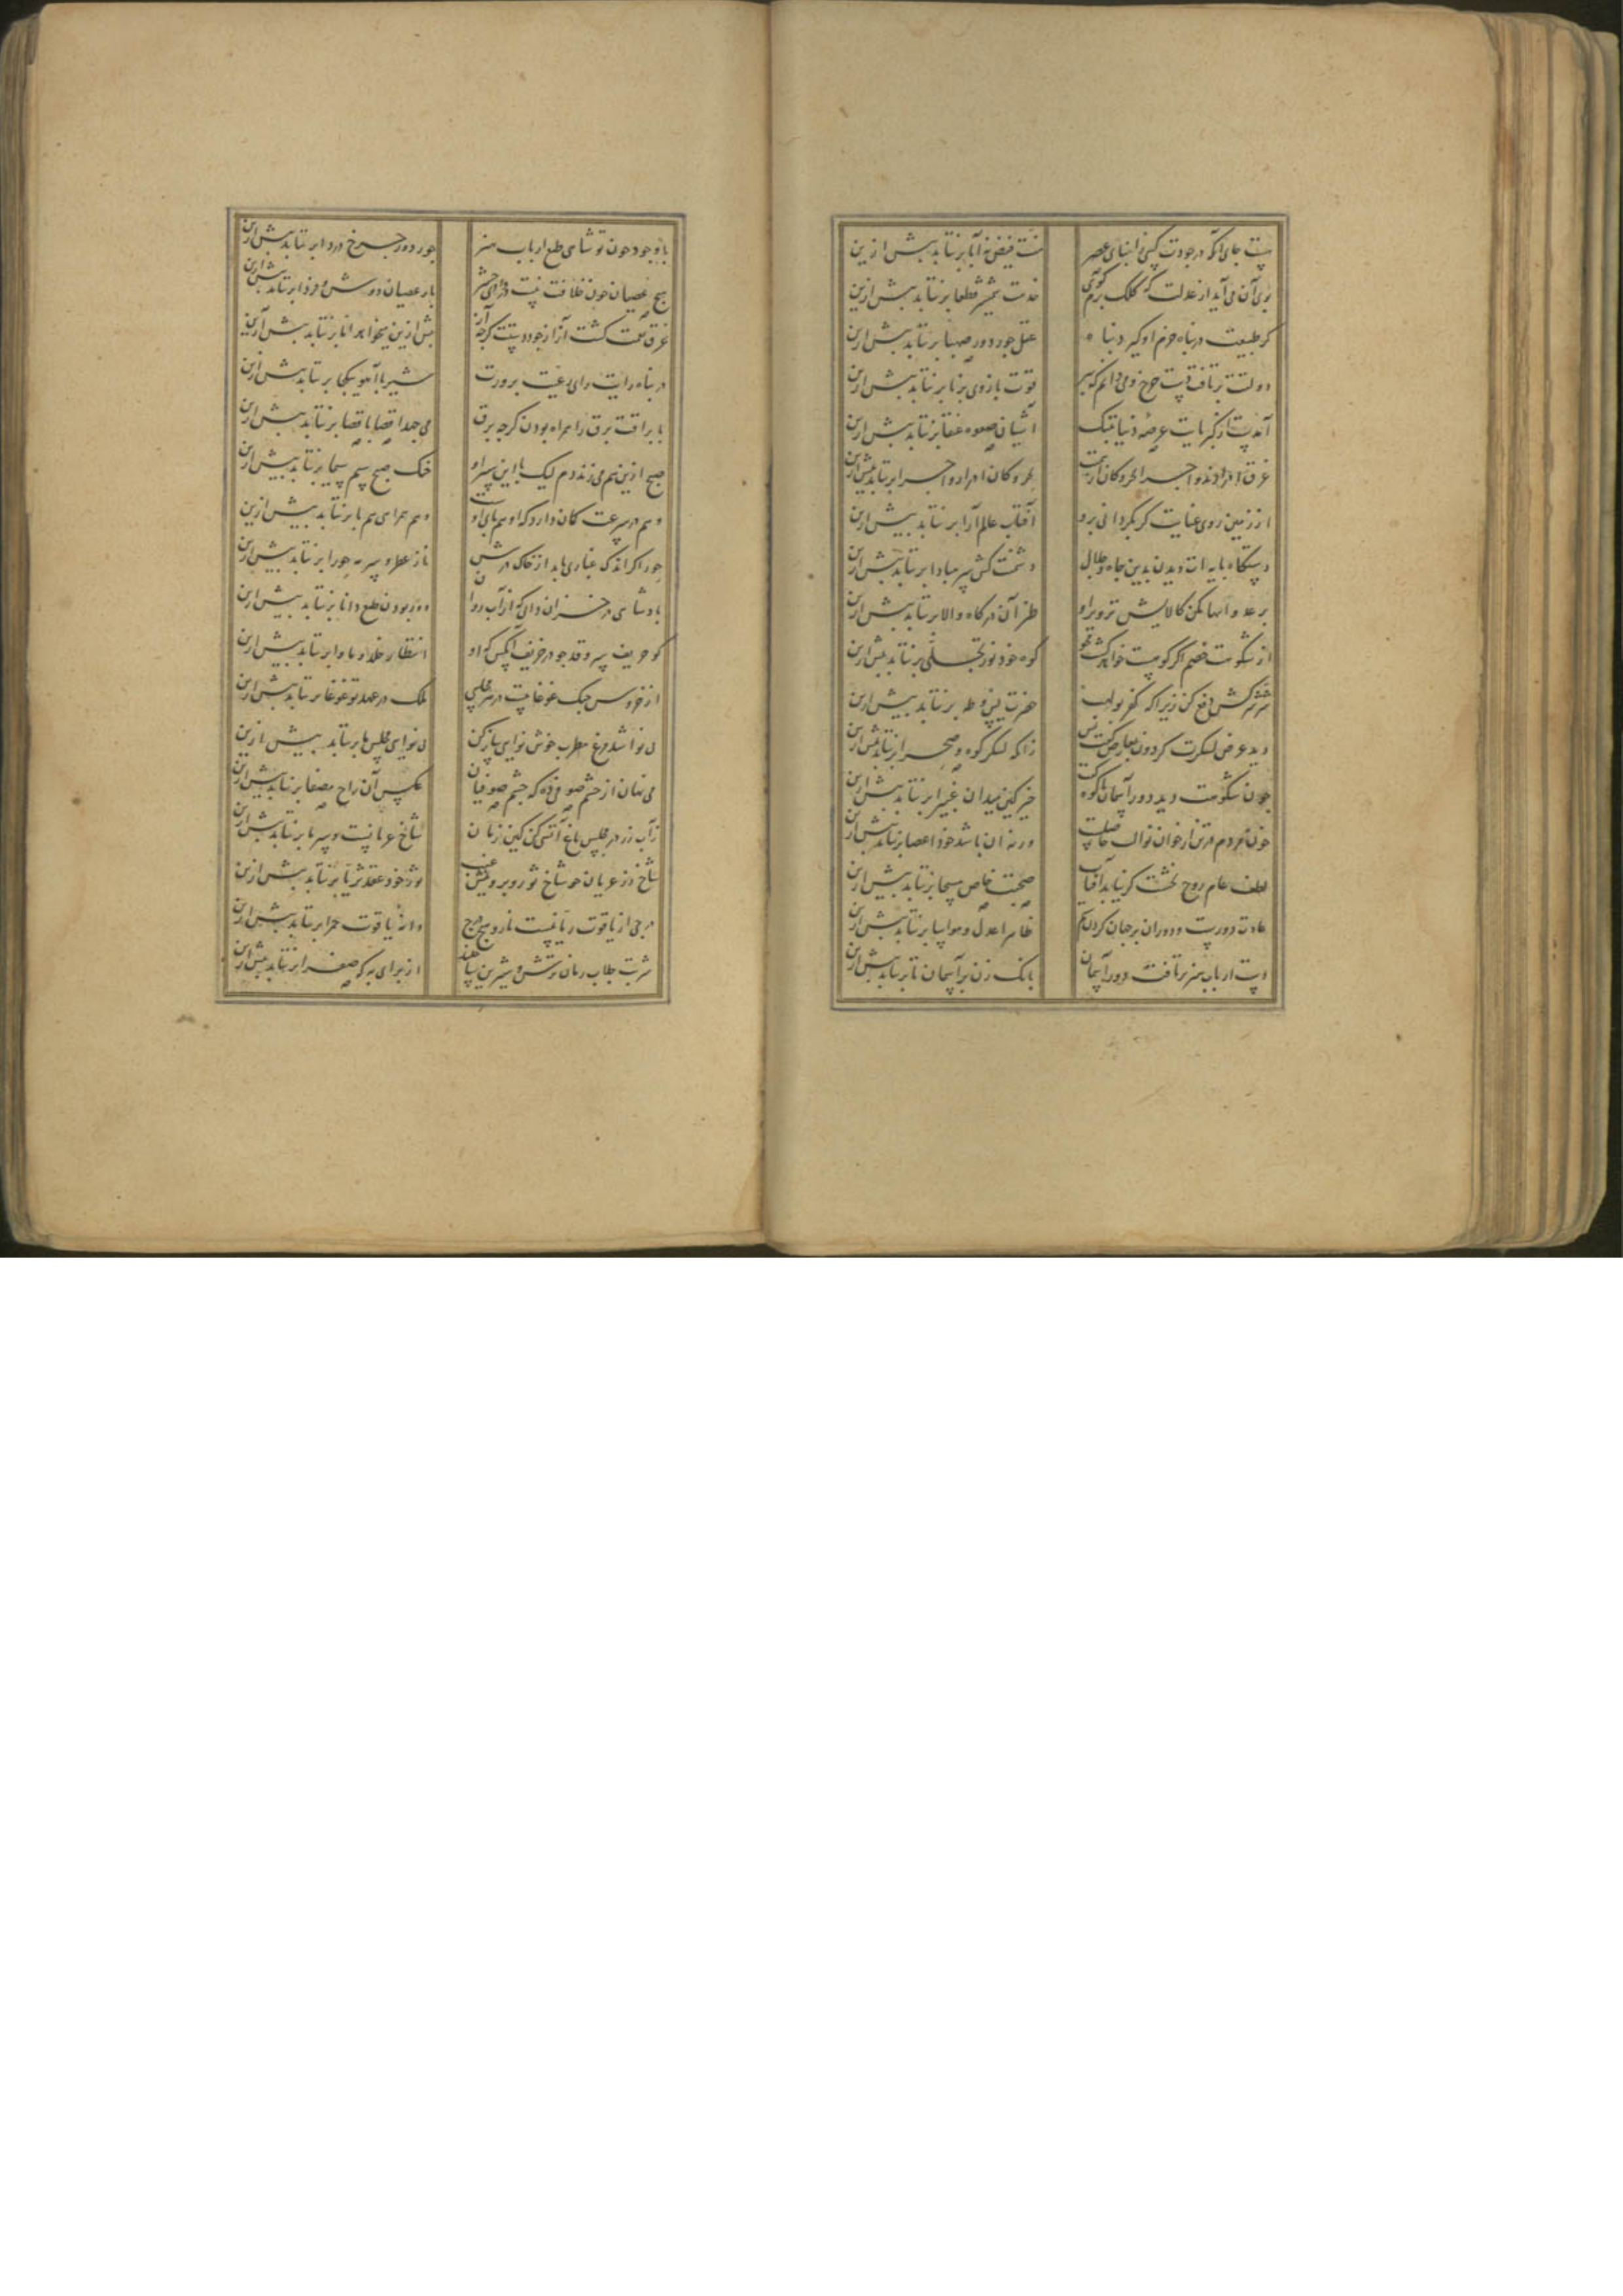 هست جای آنکه در جودت کسی ابنای عصر
منت فیض آبا برنتابد بیش ازین
بوی آن می‌آید از عدلت که کلک
خدمت شمشیر قطعا برنتابد بیش ازین
کر طبیعت در پناه حزم او کیرد پناه
عقل جور دور صهبا برنتابد بیش ازین
دولتت برتافت دست چرخ و می دانم که پیر
قوت بازوی برنا برنتابد بیش ازین
آمدست از کبریایت عرصه دنیا تنک
آشیان صعوه عنقا برنتابد بیش ازین
غرق ادرارند و اجرا بحر و کان از همتت
بحر و کان ادرار و اجرا برنتابد بیش ازین
از زمین روی عنایت کر بکردانی برو
آفتاب عالم آرا برنتابد بیش ازین
دستکاه پایه ات دیدن بدین جاه و جلال
برنتابد بیش ازین
بر عدو ابهامکن کالایش تزویر او
طنز آن درکاه والا برنتابد بیش ازین
از شکوهت خصم اکر کوهیست خواهد کشت
کوه خود نور تجلی برنتابد بیش ازین
شر شرکش دفع کن زیرا که کفر بولهب
حضرت یس و طه برنتابد بیش ازین
دید عرض لشکرت کردون بعارض کفت بس
زانکه لشکر کوه و صحرا برنتابد بیش ازین
چون شکوهت دید دور آسمان کفت
میدان غبرا برنتابد بیش ازین
چون خورد مردم تن از خوان نوال
ورنه آن باشد خود اعضا برنتابد بیش ازین
لطف عام روح بخشت کر نیابد آفتاب
صحبت خاص مسیحا برنتابد بیش ازین
عادت دورست و دوران بر جهان کردن ستم
ظاهرا عدل برنتابد بیش ازین
دست ارباب هنر برتافت دور آسمان
بانک زن بر آسمان تا برنتابد بیش ازین
با وجود چون تو شاهی طبع ارباب هنر
جور دور چرخ برنتابد بیش ازین
هیچ عصیان چون خلافت نیست
بار عصیان دوش برنتابد بیش ازین
غرق نعمت کشت آز از جود دستت کرچه آز
بیش ازین میخواهد اما برنتابد بیش ازین
در پناه رایت رای رعیت پرورت
شیر با آهو یکجا برنتابد بیش ازین
با براقت برق را همراه بودن کرچه برق
می جهد اقصا باقصا برنتابد بیش ازین
صبح ازین هم می زند دم لیک با این سیر او
خنک صبح سیم سیما برنتابد بیش ازین
وهم در سرعت کمان دارد که او همپای او
وهم همراهی هم پا برنتابد بیش ازین
حور اکر اندک غباری یابد از خاک درش
ناز عطر و سرمه حورا برنتابد بیش ازین
پادشاهی در خزان
دور بودن طبع دانا برنتابد بیش ازین
کو حریف سرو قد جو در خریف آنکس که او
انتظار خلد و ماوا برنتابد بیش ازین
از خروس جنک غوغاییست در هر مجلسی
ملک در عهد تو غوغا برنتابد بیش ازین
بی نوا شد مرغ مطرب خوش نوایی ساز کن
بی نوایی مجلس ما برنتابد بیش ازین
می نهان از چشم صوفی ده که چشم صوفیان
عکس آن راح مصفا برنتابد بیش ازین
زآب رز در مجلس باغ آتشی کن کین زمان
شاخ عریانست و سرما برنتابد بیش ازین
شاخ رز عریان چو شاخ ثور
ثور خود عقد ثریا برنتابد بیش ازین
درجی از یاقوت رمانیست نار و هیچ درج
دانه یاقوت حمرا برنتابد بیش ازین
شربت جلاب رمان ترش و شیرین
از برای به که صفرا برنتابد بیش ازین